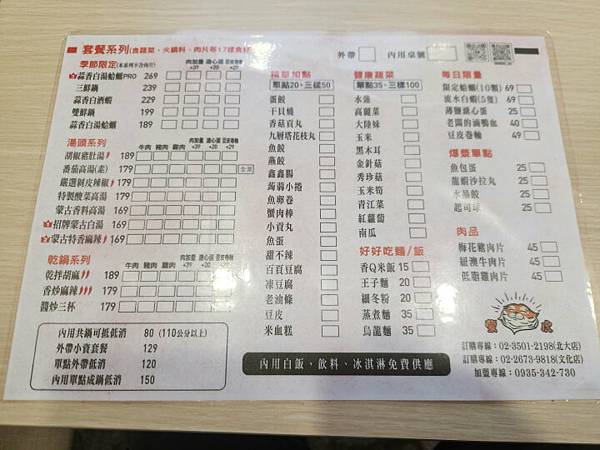 套餐系列(含蔬菜、火鍋料、肉片等17種食材)
外帶
內用桌號
季節限定(本系列不含肉片)
肉加量 +39
溏心蛋 +20
蒜香白湯蛤蠣PRO 269
三鮮鍋 239
蒜香白酒蝦 219
雙鮮鍋 199
蒜香白湯蛤蠣 189
湯頭系列
牛肉 豬肉 雞肉
肉加量 +39
溏心蛋 +20
胡椒豬肚湯 189
番茄高湯(素) 179
全素
嚴選剝皮辣椒 179
特製酸菜高湯 179
蒙古香料高湯 169
招牌蒙古白湯 169
蒙古特香麻辣 169
乾鍋系列
牛肉 豬肉 雞肉
肉加量 +39
溏心蛋 +20
乾拌胡麻 189
香炒麻辣 179
醬炒三杯 179
內用共鍋可抵低消 80 (110公分以上)
外帶小資套餐 129
單點外帶低消 120
內用單點成鍋低消 150
精華加點
單點20、三樣50
蛋餃
干貝燒
香菇貢丸
九層塔花枝丸
魚餃
燕餃
鑫鑫腸
蒟蒻小捲
魚卵卷
蟹肉棒
小貢丸
魚蛋
甜不辣
百頁豆腐
凍豆腐
老油條
豆皮
米血糕
健康蔬菜
單點35、三樣100
水蓮
高麗菜
大陸妹
玉米
黑木耳
金針菇
秀珍菇
玉米筍
青江菜
紅蘿蔔
南瓜
好好吃麵/飯
香Q米飯 15
王子麵 20
細冬粉 20
蒸煮麵 35
烏龍麵 35
每日限量
限定蛤蠣(10顆) 69
流水白蝦(5隻) 69
薄鹽溏心蛋 25
老闆的滷鴨血 40
豆皮卷麵 49
爆漿單點
魚包蛋 25
龍蝦沙拉丸 25
水晶餃 25
起司球 25
肉品
梅花豬肉片 45
紐澳牛肉片 45
低脂雞肉片 45
訂購專線：02-3501-2198(北大店)
訂購專線：02-2673-9818(文化店)
加盟專線：0935-342-730
內用白飯、飲料、冰淇淋免費供應